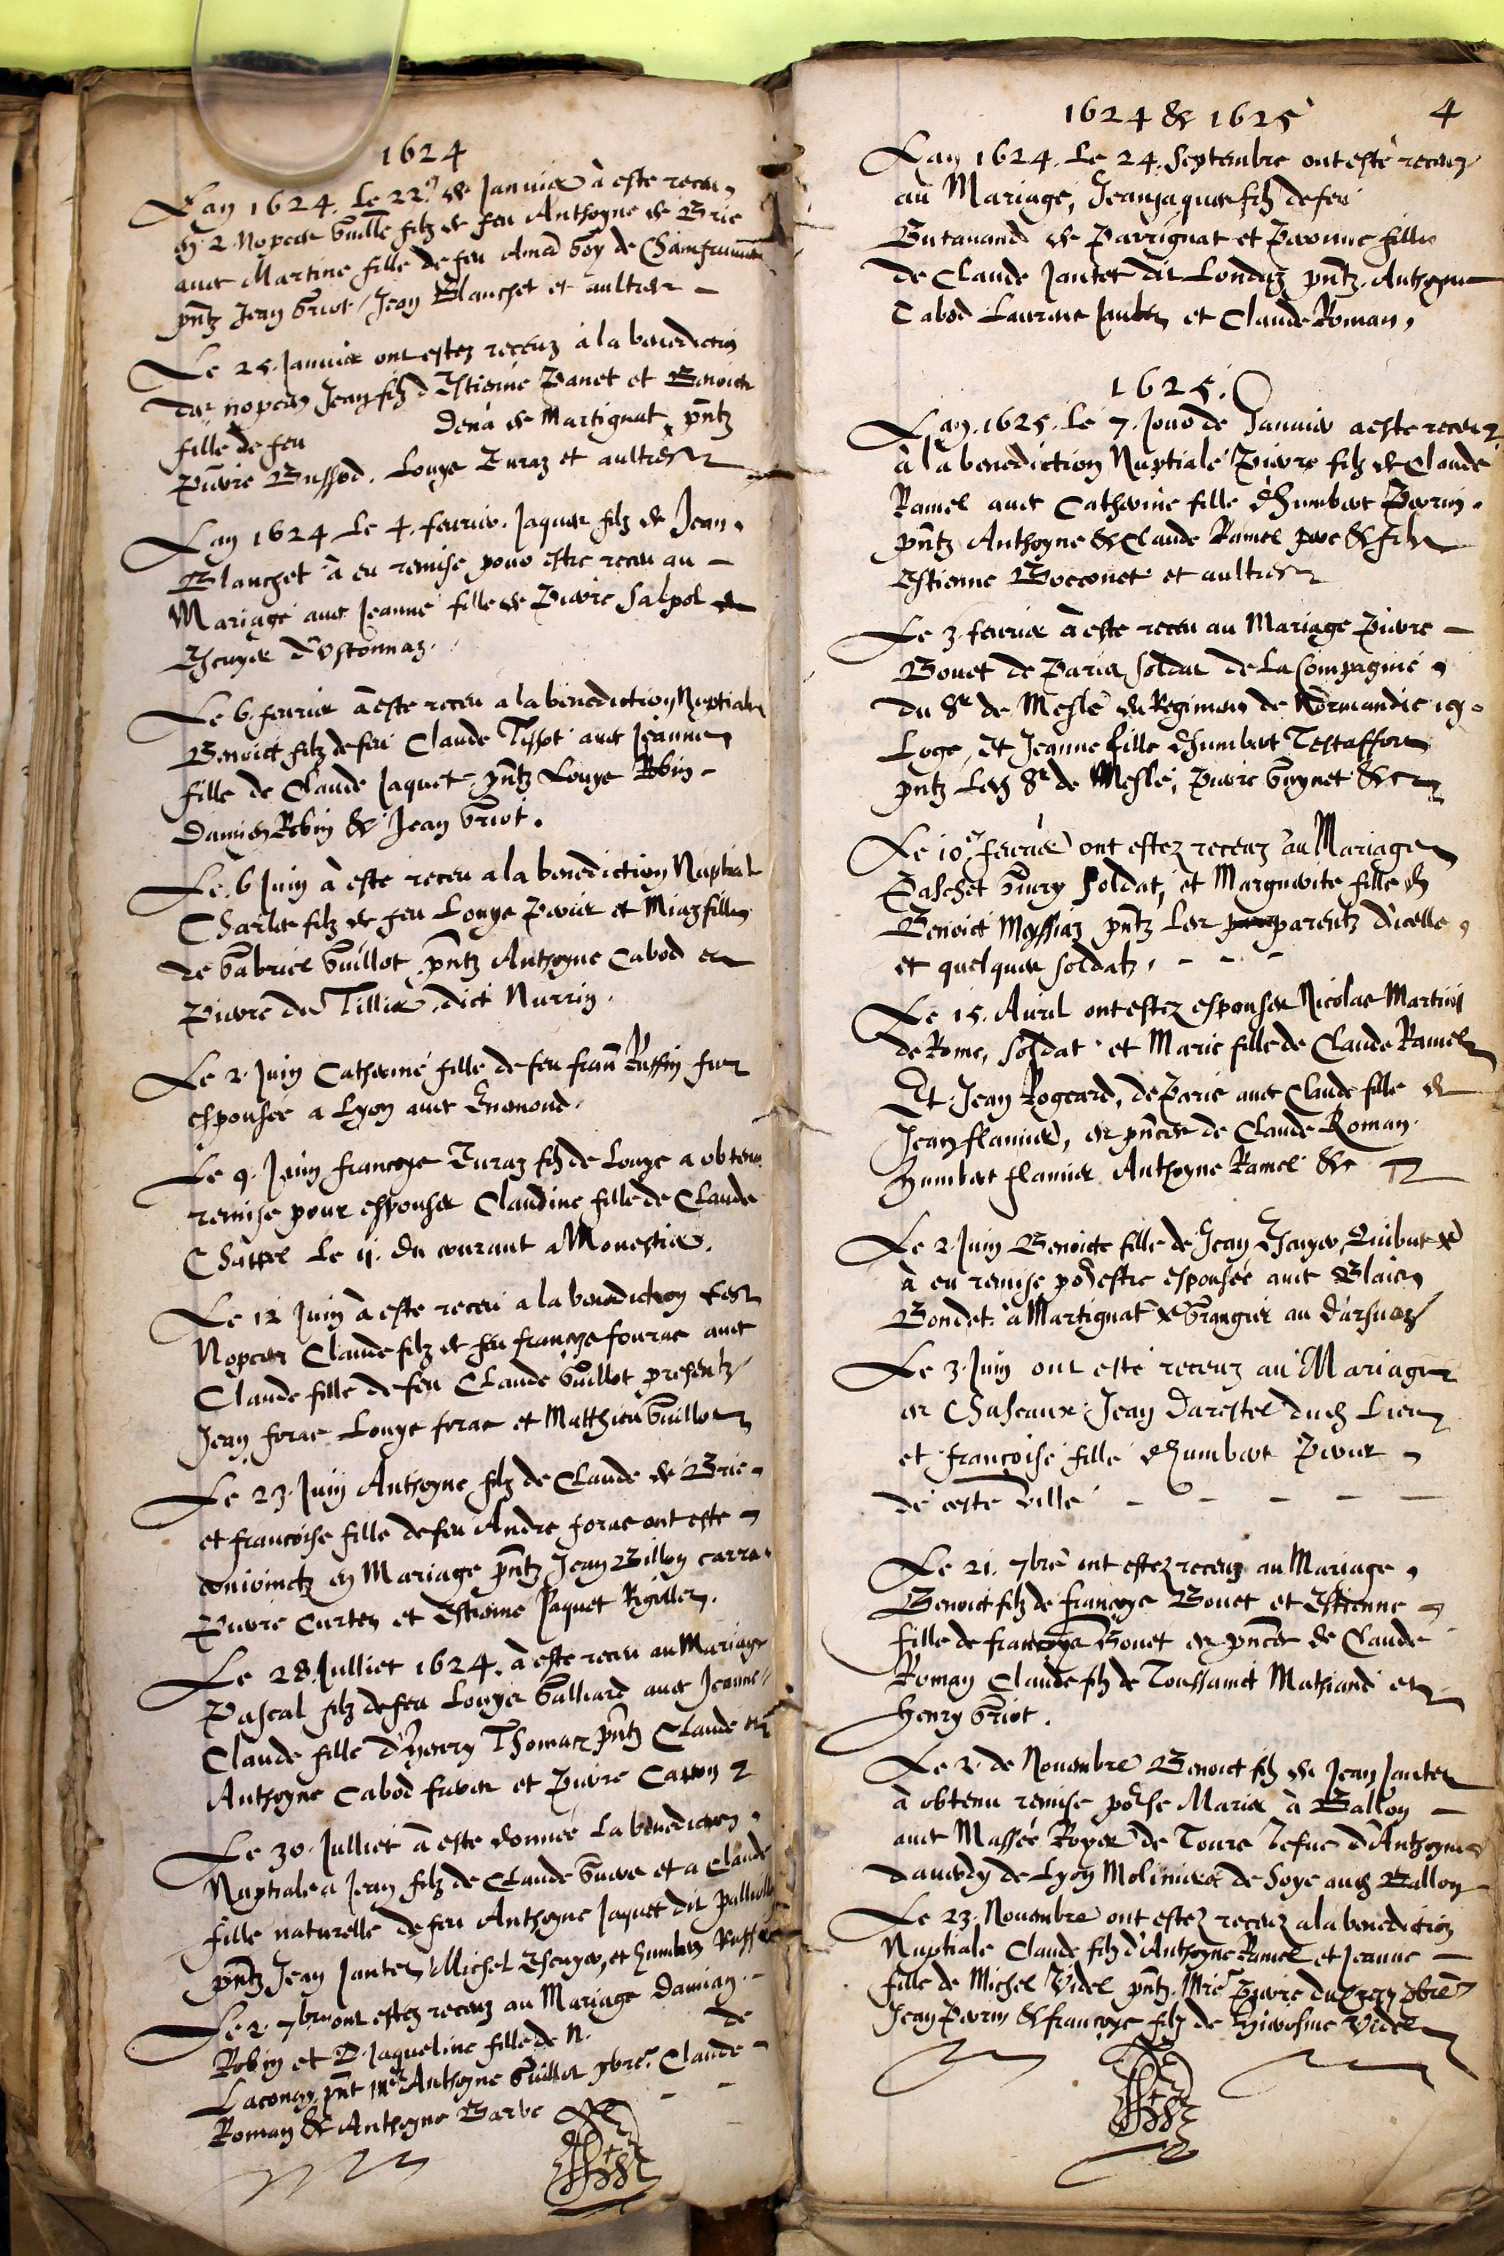 1624
Lan 1624. Le 22.e de Januier à este receu
en 2. Nopces Guille filz de feu Anthoyne de Brie
auec Martine fille de feu Amad Goy de
pntz Jean Griot, Jean Blanchet et aultres
Le 25. Januier ont estez receuz à la benediction
des nopces Jean filz d'Estienne Panet et Benoicte
fille de feu Dena de Martignat, pntz
Pierre Bussod. Louys Euraz et aultres
Lan 1624 Le 4. feurier. Jaques filz de Jean
Blanchet à eu remise pour estre receu au
Mariage auec Jeanne fille de Pierre Salpol
Escuyer d'Ostonnaz.
Le 6. feurier à este receu a la benediction Nuptiale
Benoict filz de feu Claude Tissot auec Jeanne
fille de Claude Jaquet pntz Louys Robin
Damien Robin & Jean Griot.
Le 6 Juin à este receu a la benediction Nuptiale
Charles filz de feu Louys Perier et Miaz fille
de Gabriel Guillot, pntz Anthoyne Cabod et
Pierre du Tillier, dict Nurrin.
Le 2. Juin Catherine fille de feu Frann Ruffin fut
espousée a Lyon auec Enemond.
Le 9. Juin Francoys Euraz filz de Louys a obtenu
remise pour espouser Claudine fille de Claude
Chattel Le 11. du courant a Monestier.
Le 12 Juin à este receu a la benediction des
Nopces Claude filz de feu francoys fourae auec
Claude fille de feu Claude Guillot presentz
Jean forae Louys forae et Matthieu Guillot
Le 23. Juin Anthoyne filz de Claude de Brie
et francoise fille de feu Andre forae ont este
conioinctz en Mariage pntz Jean Billon carra
Pierre Curtet et Estienne Jaquet
Le 28. Julliet 1624. à este receu au Mariage
Pascal filz de feu Louys Galliard auec Jeanne
Claude fille d'henry Thomas pntz Claude et
Anthoyne Cabod freres et Pierre Carron
Le 30. Julliet à este donnée La benediction
Nuptiale a Jean filz de Claude Guerre et a Claude
fille naturelle de feu Anthoyne Jaquet dit
pntz Jean Jantet Michel Escuyer, et humbert
Le 2. 7bre ont estez receuz au Mariage Damian
Robin et D. Jaqueline fille de N. de
Laconey, pnt Mre Anthoyne Guillot pbre. Claude
Roman & Anthoyne Barbe
1624 & 1625 4
Lan 1624. Le 24. Septembre ont esté receuz
au Mariage, Jeanjaques filz de feu
Butauand de Parrignat et Peronne fille
de Claude Jantet dit Londaz pntz. Anthoyne
Cabod Laurens Jantet et Claude Roman,
1625.
Lan. 1625. Le 7. Jour de Januier a este receu
à la benediction Nuptiale Pierre filz de Claude
Ramel auec Catherine fille d'humbert Perrin
pntz Anthoyne & Claude Ramel pere & filz
Estienne Bocconet et aultres
Le 3. feurier à este receu au Mariage Pierre
Bouet de Paris, soldat de La Compagnie
du Sr de Meslé du Regiment de Normandie icy
Logé, Et Jeanne fille d'humbert Testaffort
pntz Led. Sr de Meslé, Pierre Guynet &c
Le 10e. feurier ont estez receuz au Mariage
Paschet Guery soldat, et Marguerite fille de
Benoict Meyssiaz pntz Les parentz d'icelle,
et quelques soldatz.
Le 15. Auril ont estez espouses Nicolas Martin
de Rome, soldat et Marie fille de Claude Ramel
Et Jean Rogeard, de Paris auec Claude fille de
Jean flamier, en pnces de Claude Roman.
humbert flamier Anthoyne Ramel &c
Le 2. Juin Benoicte fille de Jean Escuyer
à eu remise por estre espousée auec Blaise
Bondet. à Martignat & Grangier au
Le 3. Juin ont esté receuz au Mariage
es Chaseaux Jean Darestel dud Lieu
et françoise fille d'humbert Perier
de ceste ville
Le 21. 7bre ont estez receuz au Mariage,
Benoict filz de françoys Bouet et Estienne
fille de francoys Bouet en pnces de Claude
Roman Claude filz de Toussainct Mathiand et
henry Griot.
Le 2. de Nouembre Benoict filz de Jean Jantet
à obtenu remise por se Marier à Ballon
auec Massée Royer de Toure Vefue d'Anthoyne
dauerdy de Lyon Molinier de Soye aud Ballon
Le 23. Nouembre ont estez receuz a la benediction
Nuptiale Claude filz d'Anthoyne Ramel et Jeanne
fille de Michel Videl pntz. Mre Pierre pbre
Jean Perrin & francoys filz de hierosme Videl